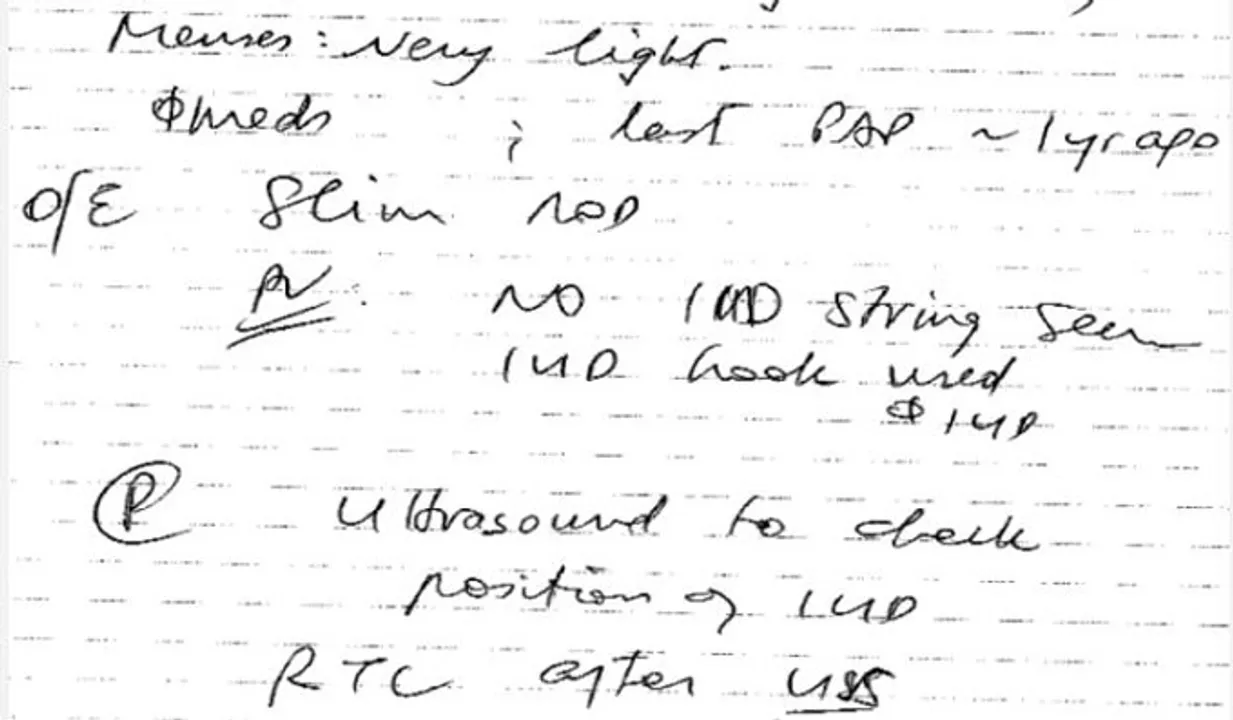 Menses: Very light.
∅ meds ; last PAP ~ 1 yr ago
O/E Slim NAD
PV: NO IUD string seen
IUD hook used
∅ IUD
Ⓟ Ultrasound to check
position of IUD
RTC after USS